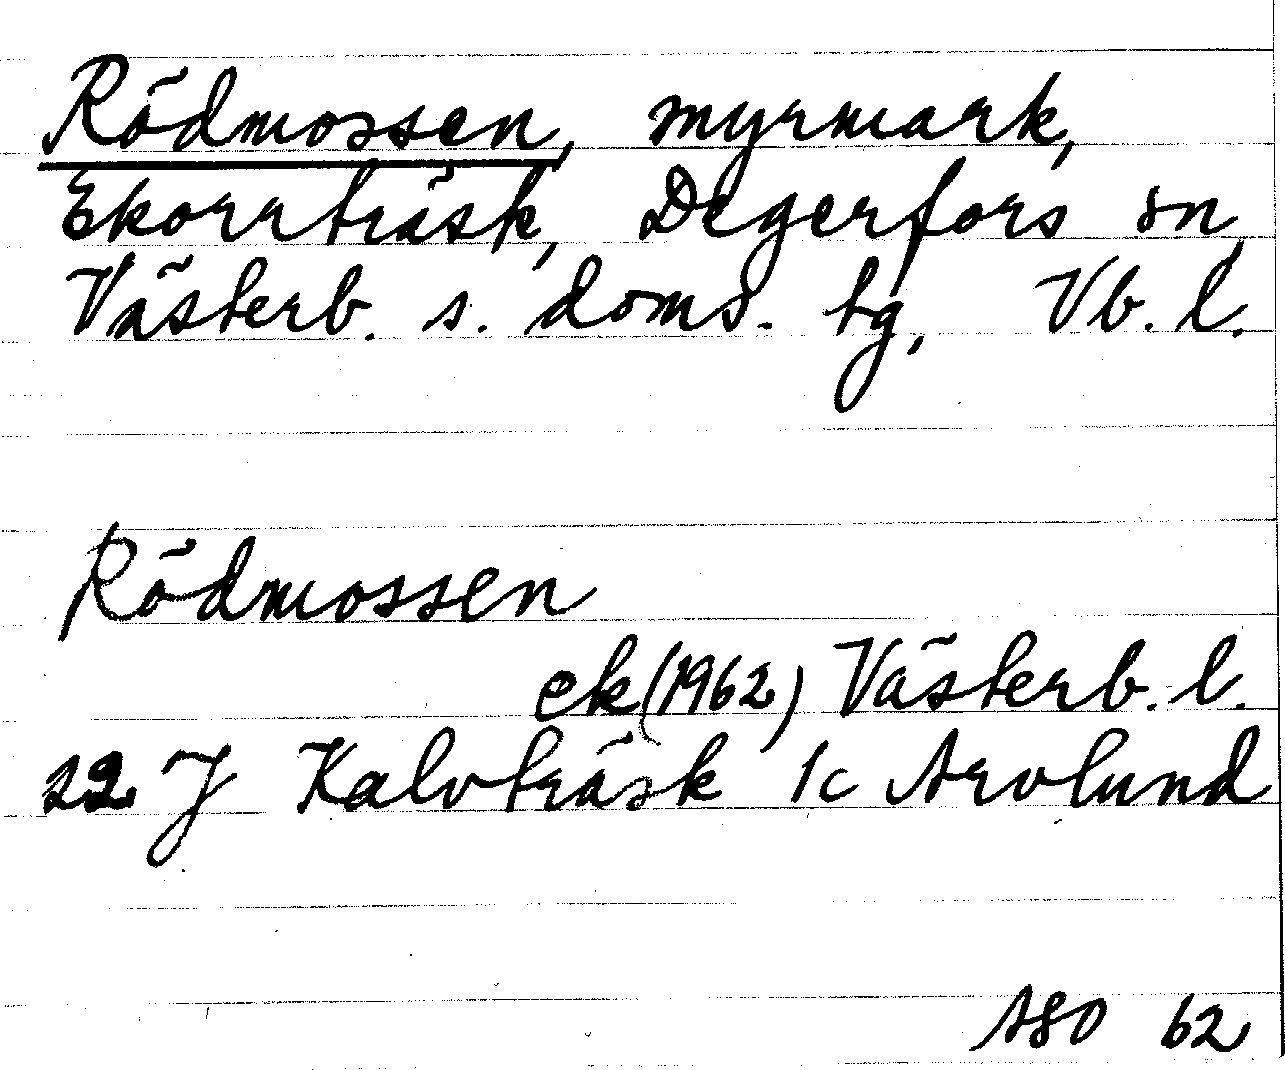 Rödmossen, myrmark,
Ekorrträsk, Degerfors sn,
Västerb. s. doms. tg, Vb. l.
Rödmossen
ek (1962) Västerb. l.
22 J Kalvträsk 1c Arvlund
ASO 62